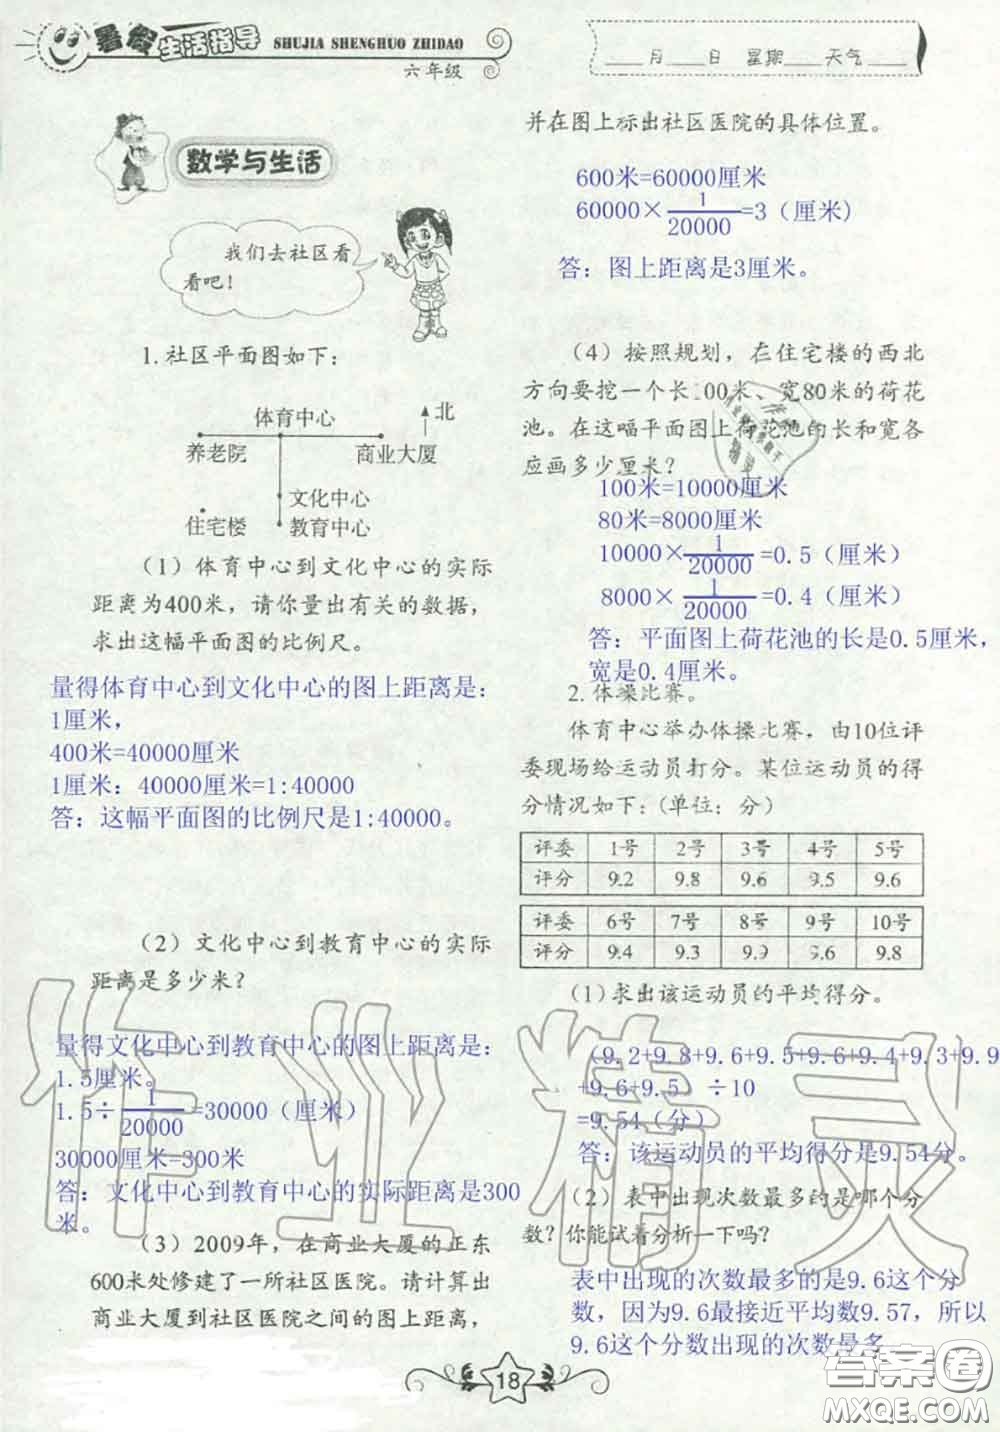 暑假生活指导
SHUJIA SHENGHUO ZHIDAO
六年级
月 日 星期 天气
数学与生活
我们去社区看
看吧！
1. 社区平面图如下：
体育中心
北
养老院
商业大厦
文化中心
住宅楼
教育中心
（1）体育中心到文化中心的实际
距离为400米，请你量出有关的数据，
求出这幅平面图的比例尺。
量得体育中心到文化中心的图上距离是：
1厘米，
400米=40000厘米
1厘米：40000厘米=1:40000
答：这幅平面图的比例尺是1:40000。
（2）文化中心到教育中心的实际
距离是多少米？
量得文化中心到教育中心的图上距离是：
1.5厘米。
1.5÷1/20000=30000（厘米）
30000厘米=300米
答：文化中心到教育中心的实际距离是300
米。
（3）2009年，在商业大厦的正东
600米处修建了一所社区医院。请计算出
商业大厦到社区医院之间的图上距离，
并在图上标出社区医院的具体位置。
600米=60000厘米
60000×1/20000=3（厘米）
答：图上距离是3厘米。
（4）按照规划，在住宅楼的西北
方向要挖一个长100米、宽80米的荷花
池。在这幅平面图上荷花池的长和宽各
应画多少厘米？
100米=10000厘米
80米=8000厘米
10000×1/20000=0.5（厘米）
8000×1/20000=0.4（厘米）
答：平面图上荷花池的长是0.5厘米，
宽是0.4厘米。
2. 体操比赛。
体育中心举办体操比赛，由10位评
委现场给运动员打分。某位运动员的得
分情况如下：（单位：分）
评委 1号 2号 3号 4号 5号
评分 9.2 9.8 9.6 9.5 9.6
评委 6号 7号 8号 9号 10号
评分 9.4 9.3 9.9 9.6 9.8
（1）求出该运动员的平均得分。
（9.2+9.8+9.6+9.5+9.6+9.4+9.3+9.9
+9.6+9.5） ÷10
=9.54（分）
答：该运动员的平均得分是9.54分。
（2）表中出现次数最多的是哪个分
数？你能试着分析一下吗？
表中出现的次数最多的是9.6这个分
数，因为9.6最接近平均数9.57，所以
9.6这个分数出现的次数最多
18
作业精灵
答案圈
MXQE.COM